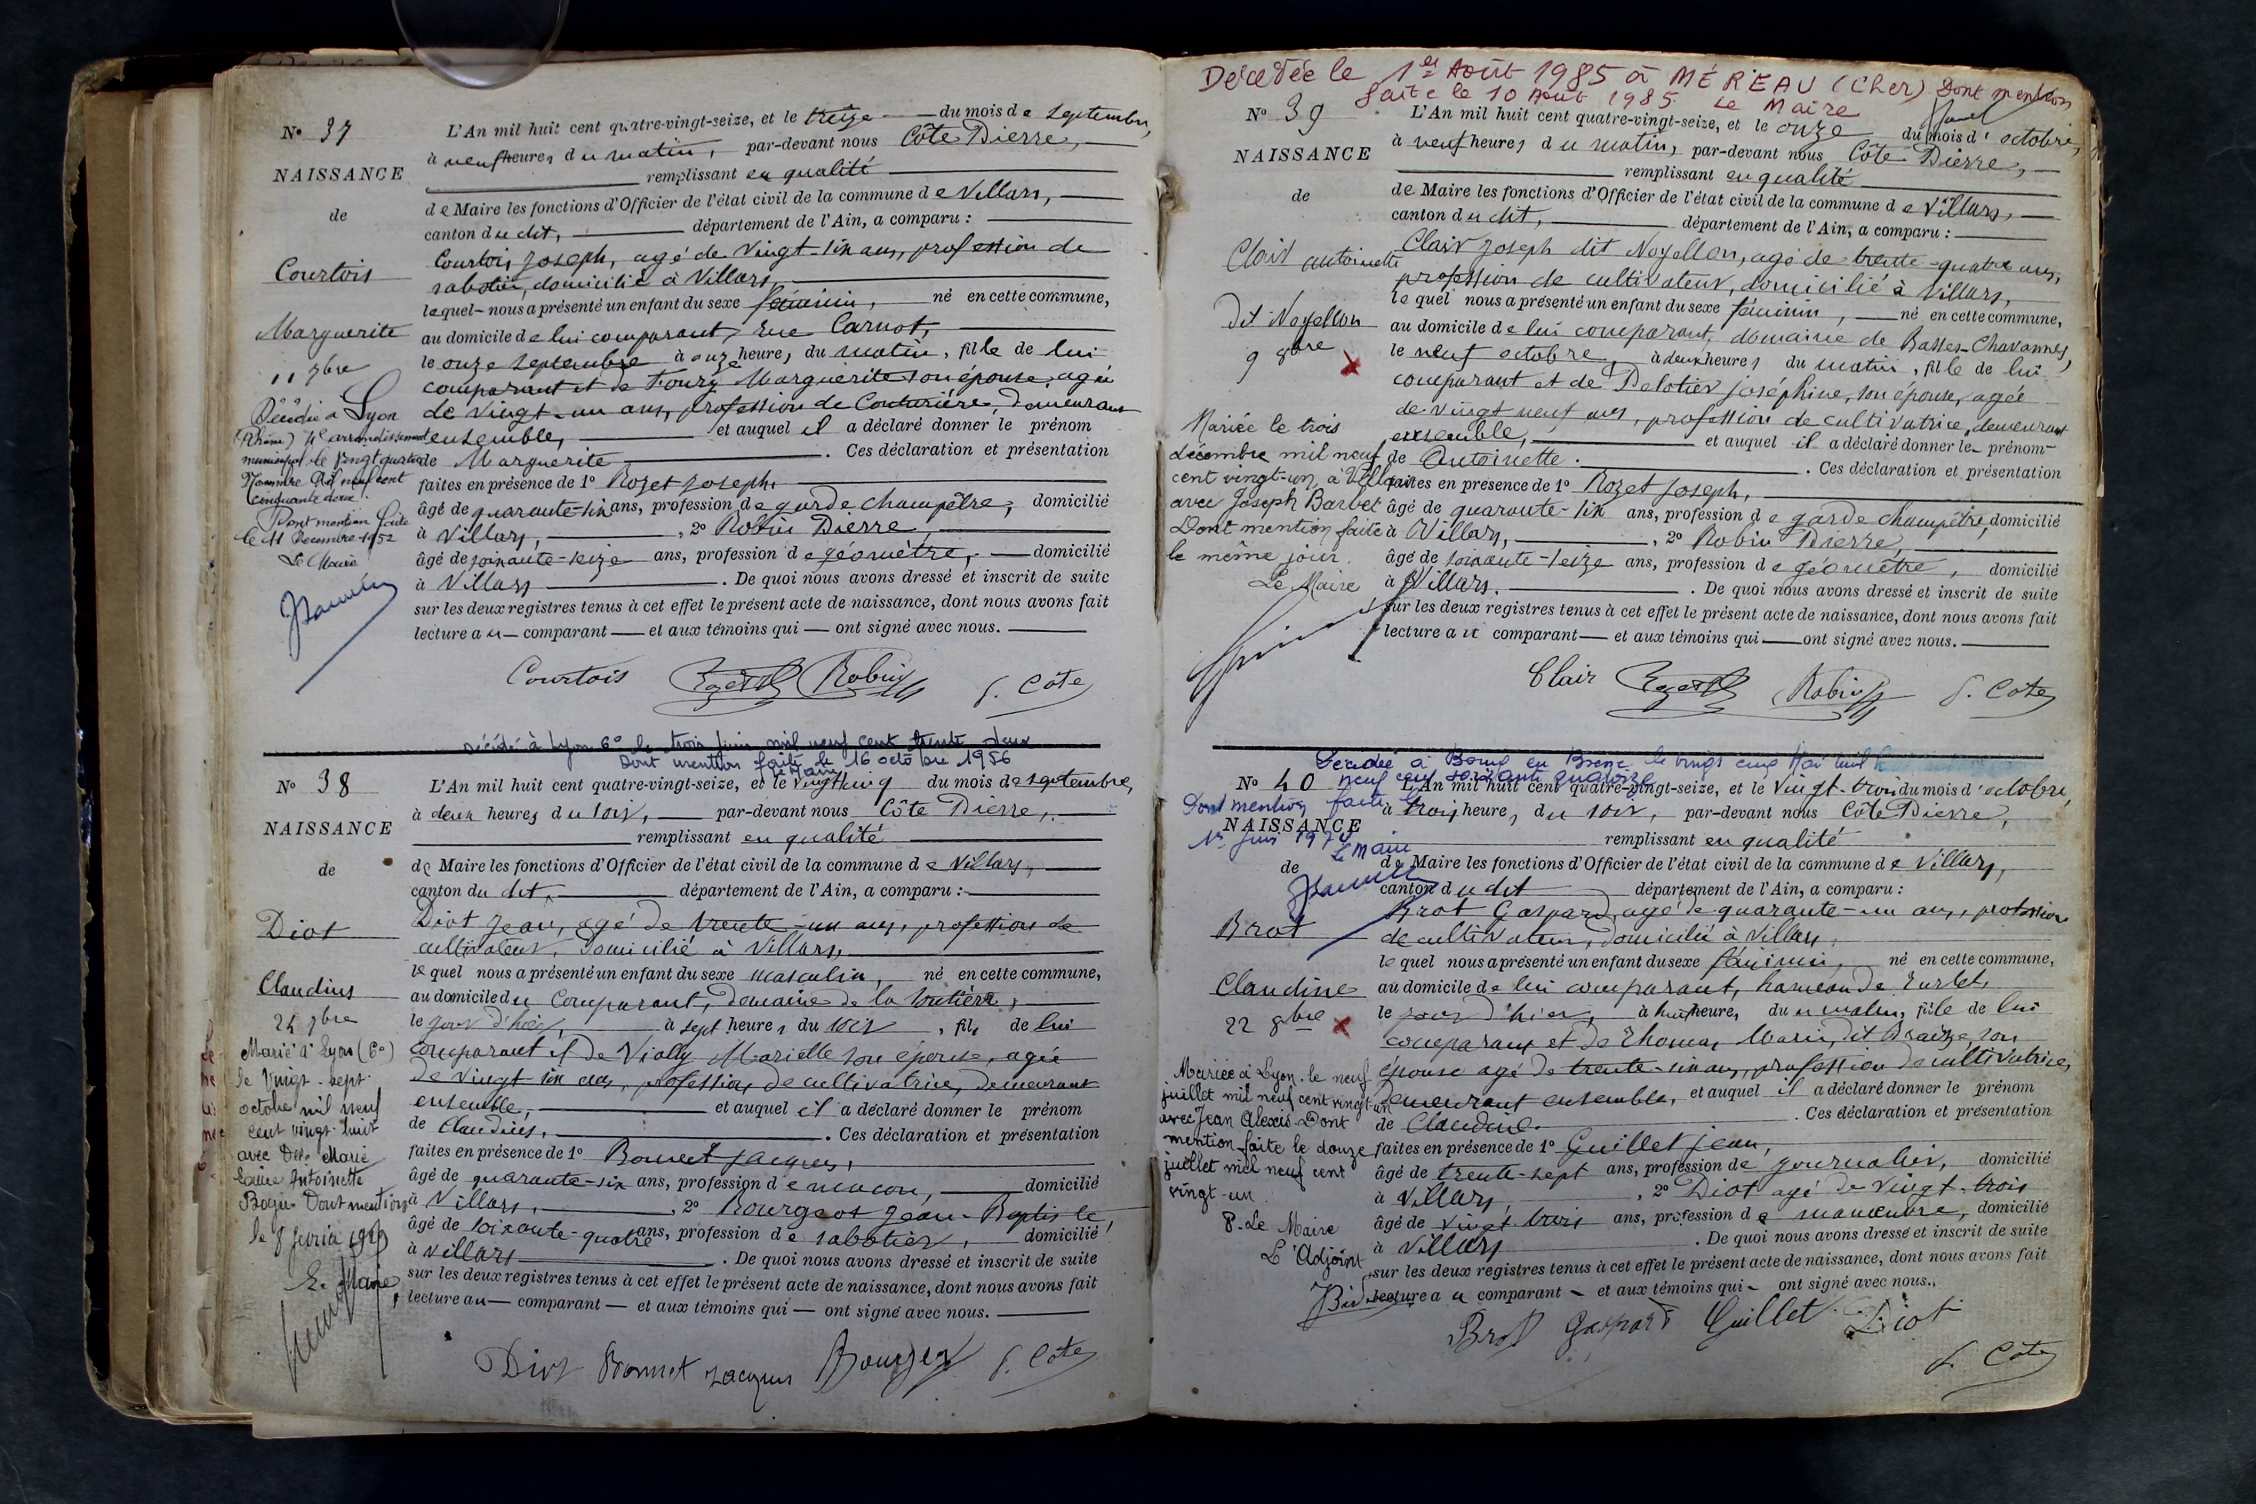 N° 37
NAISSANCE
de
Courtois
Marguerite
11 7bre
Décédée à Lyon
(Rhône) 4e arrondissement
municipal le vingt quatre
Novembre mil neuf cent
cinquante deux.
Dont mention faite
le 11 Décembre 1952
Le Maire
L'An mil huit cent quatre-vingt-seize, et le treize du mois de septembre,
à neuf heures du matin, par-devant nous Côte Pierre,
remplissant en qualité
de Maire les fonctions d'Officier de l'état civil de la commune de Villars,
canton du dit, département de l'Ain, a comparu :
Courtois Joseph, agé de vingt-six ans, profession de
sabotier, domicilié à Villars,
lequel nous a présenté un enfant du sexe féminin, né en cette commune,
au domicile de lui comparant, rue Carnot,
le onze septembre à onze heures du matin, fille de lui
comparant et de Foury Marguerite son épouse, agée
de vingt-un ans, profession de Couturière, demeurant
ensemble, et auquel il a déclaré donner le prénom
de Marguerite. Ces déclaration et présentation
faites en présence de 1° Rozet Joseph,
âgé de quarante-six ans, profession de garde champêtre, domicilié
à Villars, 2° Robin Pierre,
âgé de soixante-seize ans, profession de géomètre, domicilié
à Villars. De quoi nous avons dressé et inscrit de suite
sur les deux registres tenus à cet effet le présent acte de naissance, dont nous avons fait
lecture au comparant et aux témoins qui ont signé avec nous.
Courtois Rozet Robin P. Côte
décédé à Lyon 6e le trois juin mil neuf cent trente deux
Dont mention faite le 16 octobre 1956
Le Maire
N° 38
NAISSANCE
de
Diot
Claudius
24 7bre
Marié à Lyon (6e)
le vingt-sept
octobre mil neuf
cent vingt-huit
avec Dlle Marie
Antoinette
Dont mention
le 8 février 1929
Le Maire
L'An mil huit cent quatre-vingt-seize, et le vingt-cinq du mois de septembre,
à deux heures du soir, par-devant nous Côte Pierre,
remplissant en qualité
de Maire les fonctions d'Officier de l'état civil de la commune de Villars,
canton du dit, département de l'Ain, a comparu :
Diot Jean, agé de trente-un ans, profession de
cultivateur, domicilié à Villars,
lequel nous a présenté un enfant du sexe masculin, né en cette commune,
au domicile du comparant, domaine de la
le jour d'hier, à sept heures du soir, fils de lui
comparant et de Violly Mariette son épouse, agée
de vingt-six ans, profession de cultivatrice, demeurant
ensemble, et auquel il a déclaré donner le prénom
de Claudius. Ces déclaration et présentation
faites en présence de 1° Bonnet Jacques,
âgé de quarante-six ans, profession de maçon, domicilié
à Villars, 2° Bourgeot Jean-Baptiste
âgé de soixante-quatre ans, profession de sabotier, domicilié
à Villars. De quoi nous avons dressé et inscrit de suite
sur les deux registres tenus à cet effet le présent acte de naissance, dont nous avons fait
lecture au comparant et aux témoins qui ont signé avec nous.
Diot Bonnet Jacques P. Côte
Décédée le 1er Août 1985 à MÉREAU (Cher) Dont mention
faite le 10 Août 1985 Le Maire
N° 39
NAISSANCE
de
Clair Antoinette
Dit Noyellon
9 8bre
Mariée le trois
décembre mil neuf
cent vingt-un, à Villars
avec Joseph Barbet
Dont mention faite
le même jour.
Le Maire
L'An mil huit cent quatre-vingt-seize, et le onze du mois d'octobre,
à neuf heures du matin, par-devant nous Côte Pierre,
remplissant en qualité
de Maire les fonctions d'Officier de l'état civil de la commune de Villars,
canton du dit, département de l'Ain, a comparu :
Clair Joseph dit Noyellon, agé de trente-quatre ans,
profession de cultivateur, domicilié à Villars,
lequel nous a présenté un enfant du sexe féminin, né en cette commune,
au domicile de lui comparant, domaine de Basses-Chavannes,
le neuf octobre, à deux heures du matin, fille de lui
comparant et de Pelotier Joséphine, son épouse, agée
de vingt neuf ans, profession de cultivatrice, demeurant
ensemble, et auquel il a déclaré donner le prénom
de Antoinette. Ces déclaration et présentation
faites en présence de 1° Rozet Joseph,
âgé de quarante-six ans, profession de garde champêtre, domicilié
à Villars, 2° Robin Pierre,
âgé de soixante-seize ans, profession de géomètre, domicilié
à Villars. De quoi nous avons dressé et inscrit de suite
sur les deux registres tenus à cet effet le présent acte de naissance, dont nous avons fait
lecture au comparant et aux témoins qui ont signé avec nous.
Clair Rozet Robin P. Côte
Décédée à Bourg en Bresse le vingt cinq Mai mil
neuf cent soixante quatorze
Dont mention faite le
1er Juin 1974
Le Maire
N° 40
NAISSANCE
de
Brot
Claudine
22 8bre
Mariée à Lyon le neuf
juillet mil neuf cent vingt-un
avec Jean Alexis. Dont
mention faite le douze
juillet mil neuf cent
vingt-un.
P. Le Maire
L'Adjoint
L'An mil huit cent quatre-vingt-seize, et le vingt-trois du mois d'octobre,
à trois heures du soir, par-devant nous Côte Pierre,
remplissant en qualité
de Maire les fonctions d'Officier de l'état civil de la commune de Villars,
canton du dit département de l'Ain, a comparu :
Brot Gaspard, agé de quarante-un ans, profession
de cultivateur, domicilié à Villars,
lequel nous a présenté un enfant du sexe féminin, né en cette commune,
au domicile de lui comparant, hameau de
le jour d'hier, à huit heures du matin, fille de lui
comparant et de Thomas Marie, dit Braize, son
épouse agé de trente-six ans, profession de cultivatrice,
demeurant ensemble, et auquel il a déclaré donner le prénom
de Claudine. Ces déclaration et présentation
faites en présence de 1° Guillet Jean,
âgé de trente-sept ans, profession de journalier, domicilié
à Villars, 2° Diot agé de vingt-trois
âgé de vingt-trois ans, profession de manœuvre, domicilié
à Villars. De quoi nous avons dressé et inscrit de suite
sur les deux registres tenus à cet effet le présent acte de naissance, dont nous avons fait
lecture au comparant et aux témoins qui ont signé avec nous.
Brot Gaspard Guillet Diot
P. Côte